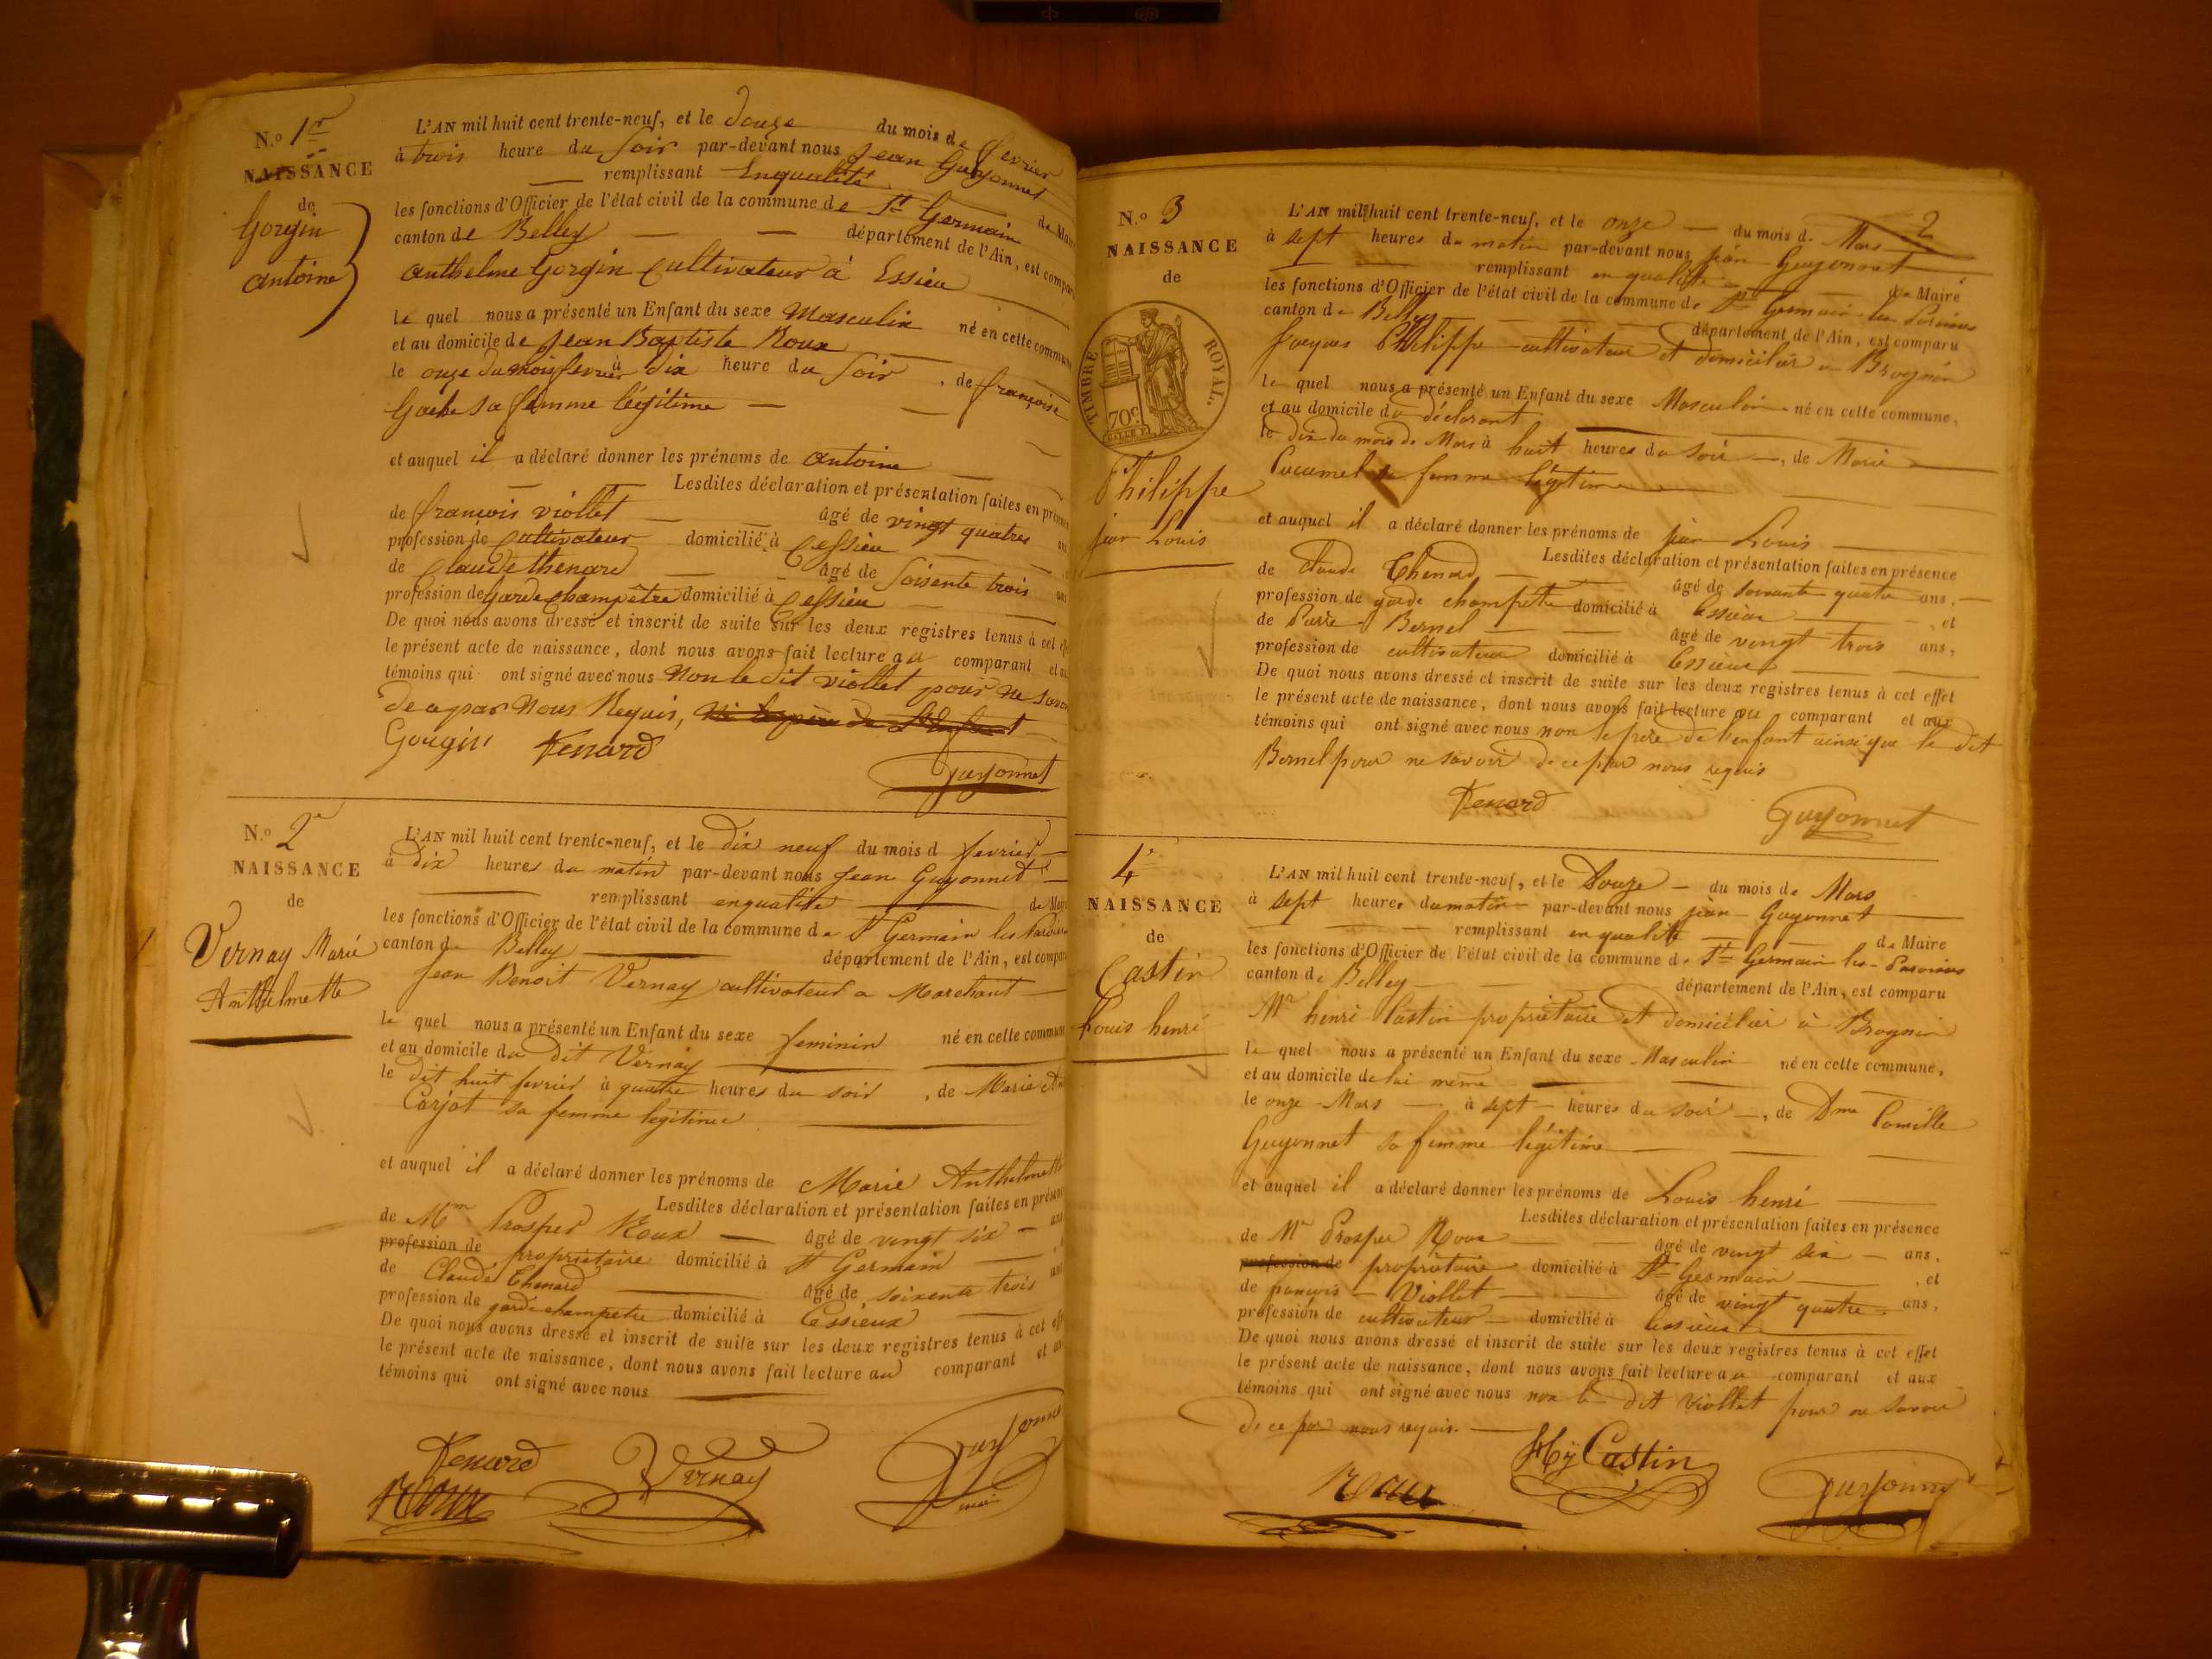 N.o 1er
NAISSANCE
de
Gorgin
antoine
L'AN mil huit cent trente-neuf, et le douze du mois de fevrier
à trois heure du Soir par-devant nous Jean Guyonnet
remplissant Enqualité de Maire
les fonctions d'Officier de l'état civil de la commune de St Germain
canton de Belley département de l'Ain, est compa
anthelme Gorgin Cultivateur à Essieu
le quel nous a présenté un Enfant du sexe Masculin né en cette commune
et au domicile de Jean Baptiste Roux
le onze du mois fevrier à dix heure du Soir, de françoise
sa femme légitime
et auquel il a déclaré donner les prénoms de antoine
Lesdites déclaration et présentation faites en présence
de françois viollet âgé de vingt quatres ans
profession de Cultivateur domicilié à Cessieu
de Claude thenard âgé de Soisente trois ans
profession de Garde Champêtre domicilié à Cessieu
De quoi nous avons dressé et inscrit de suite sur les deux registres tenus à cet eff
le présent acte de naissance, dont nous avons fait lecture au comparant et au
témoins qui ont signé avec nous Non le dit viollet pour ne savoir
de ce par Nous Requis,
Gorgin Tenard
Guyonnet
N.o 2e
NAISSANCE
de
Vernay Marie
Anthelmette
L'AN mil huit cent trente-neuf, et le dix neuf du mois d fevrier
à dix heures du matin par-devant nous Jean Guyonnet
remplissant enqualité de Maire
les fonctions d'Officier de l'état civil de la commune de St Germain les Paroisses
canton de Belley département de l'Ain, est compa
Jean Benoit Vernay cultivateur a Marchant
le quel nous a présenté un Enfant du sexe feminin né en cette commune
et au domicile du Dit Vernay
le dit huit fevrier à quatre heures du soir, de Marie
Carjot sa femme legitime
et auquel il a déclaré donner les prénoms de Marie Anthelmette
Lesdites déclaration et présentation faites en présen
de Mr Prosper Roux âgé de vingt six ans
profession de propriétaire domicilié à St Germain
de Claude Thenard âgé de soixente trois ans
profession de garde champetre domicilié à Cessieux
De quoi nous avons dressé et inscrit de suite sur les deux registres tenus à cet eff
le présent acte de naissance, dont nous avons fait lecture au comparant et au
témoins qui ont signé avec nous
Tenard Vernay Guyonnet
Roux maire
2
N.o 3
NAISSANCE
de
TIMBRE ROYAL.
70c
Philippe
jean Louis
L'AN mil huit cent trente-neuf, et le onze du mois de Mars
à sept heures du matin par-devant nous jean Guyonnet
remplissant en qualité de Maire
les fonctions d'Officier de l'état civil de la commune de St Germain les Paroisses
canton de Belley département de l'Ain, est comparu
Jacques Philippe cultivateur et domicilier a Brognin
le quel nous a présenté un Enfant du sexe Masculin né en cette commune,
et au domicile du déclarant
le dix du mois de Mars à huit heures du soir, de Marie
Cucumel sa femme légitime
et auquel il a déclaré donner les prénoms de jean Louis
Lesdites déclaration et présentation faites en présence
de Claude Thenard âgé de soixante quatre ans,
profession de garde champetre domicilié à Essieux, et
de Pierre Bernel âgé de vingt trois ans,
profession de cultivateur domicilié à Cessieux
De quoi nous avons dressé et inscrit de suite sur les deux registres tenus à cet effet
le présent acte de naissance, dont nous avons fait lecture au comparant et aux
témoins qui ont signé avec nous non le père de l'enfant ainsi que le dit
Bernel pour ne savoir de ce par nous requis
Tenard Guyonnet
4e
NAISSANCE
de
Castin
Louis henri
L'AN mil huit cent trente-neuf, et le Douze du mois de Mars
à sept heures du matin par-devant nous jean Guyonnet
remplissant en qualité de Maire
les fonctions d'Officier de l'état civil de la commune de St Germain les Paroisses
canton de Belley département de l'Ain, est comparu
Mr henri Castin propriétaire et domicilier à Brognin
le quel nous a présenté un Enfant du sexe Masculin né en cette commune,
et au domicile de lui même
le onze Mars à sept heures du soir, de Dme Camille
Guyonnet sa femme légitime
et auquel il a déclaré donner les prénoms de Louis henri
Lesdites déclaration et présentation faites en présence
de Mr Prosper Roux âgé de vingt six ans,
profession de propriétaire domicilié à St Germain, et
de françois Viollet âgé de vingt quatre ans,
profession de cultivateur domicilié à Cessieux
De quoi nous avons dressé et inscrit de suite sur les deux registres tenus à cet effet
le présent acte de naissance, dont nous avons fait lecture au comparant et aux
témoins qui ont signé avec nous non le dit Viollet pour ne savoir
de ce par nous requis.
Roux Hy Castin Guyonnet